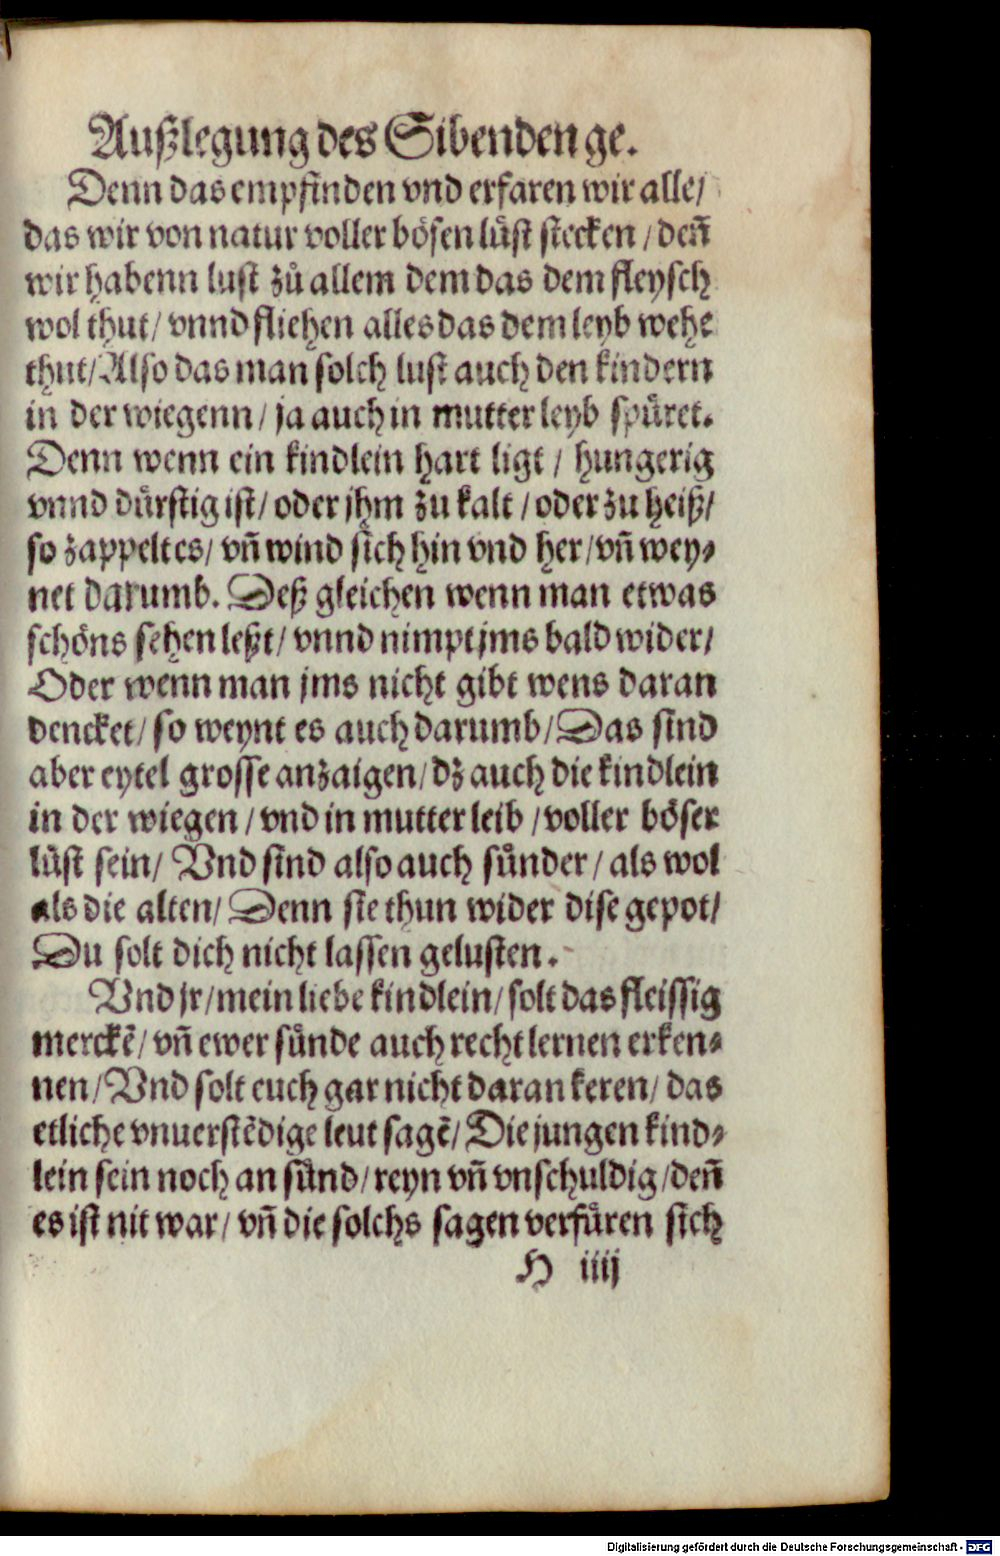 Außlegung des Sibenden ge.
Denn das empfinden vnd erfaren wir alle/
das wir von natur voller bösen lüst stecken / deñ
wir habenn lust zů allem dem das dem fleysch
wol thut / vnnd fliehen alles das dem leyb wehe
thut / Also das man solch lust auch den kindern
in der wiegenn / ja auch in mutter leyb spüret.
Denn wenn ein kindlein hart ligt / hungerig
vnnd dürstig ist / oder jhm zu kalt / oder zu heiß /
so zappelt es / vñ wind sich hin vnd her / vñ wey⸗
net darumb. Deß gleichen wenn man etwas
schöns sehen leßt / vnnd nimpt jms bald wider /
Oder wenn man jms nicht gibt wens daran
dencket / so weynt es auch darumb / Das sind
aber eytel grosse anzaigen / dz auch die kindlein
in der wiegen / vnd in mutter leib / voller böser
lüst sein / Vnd sind also auch sünder / als wol
als die alten / Denn sie thun wider dise gepot /
Du solt dich nicht lassen gelusten.
Vnd jr / mein liebe kindlein / solt das fleissig
merckẽ / vñ ewer sünde auch recht lernen erken⸗
nen / Vnd solt euch gar nicht daran keren / das
etliche vnuerstẽdige leut sagẽ / Die jungen kind⸗
lein sein noch an sünd / reyn vñ vnschuldig / deñ
es ist nit war / vñ die solchs sagen verfüren sich
H iiij
Digitalisierung gefördert durch die Deutsche Forschungsgemeinschaft - DFG